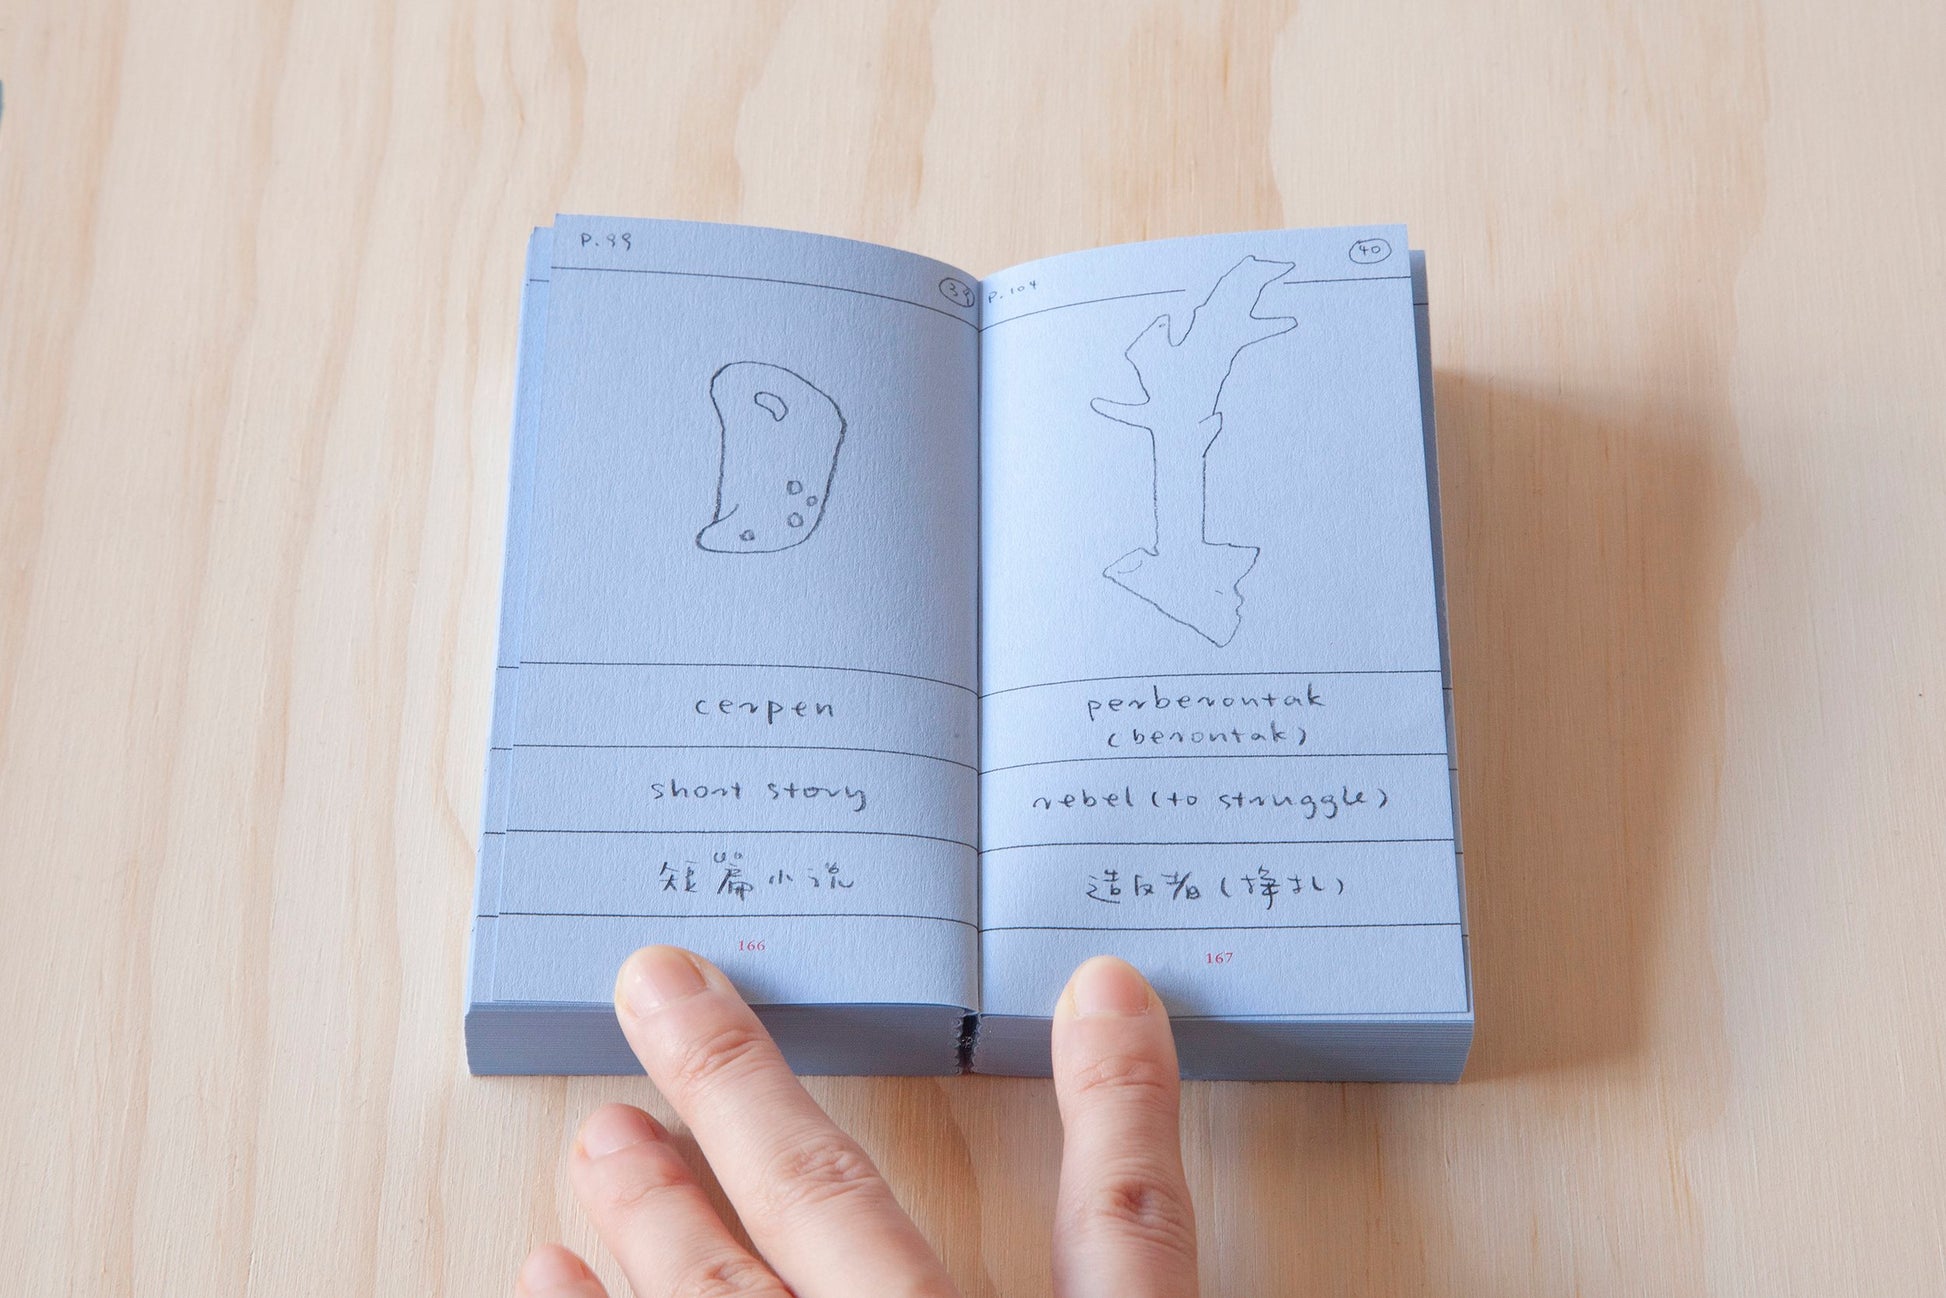 P. 99
39
cerpen
short story
短篇小说
166
P. 104
40
perberontak
(berontak)
rebel (to struggle)
造反者 (挣扎)
167